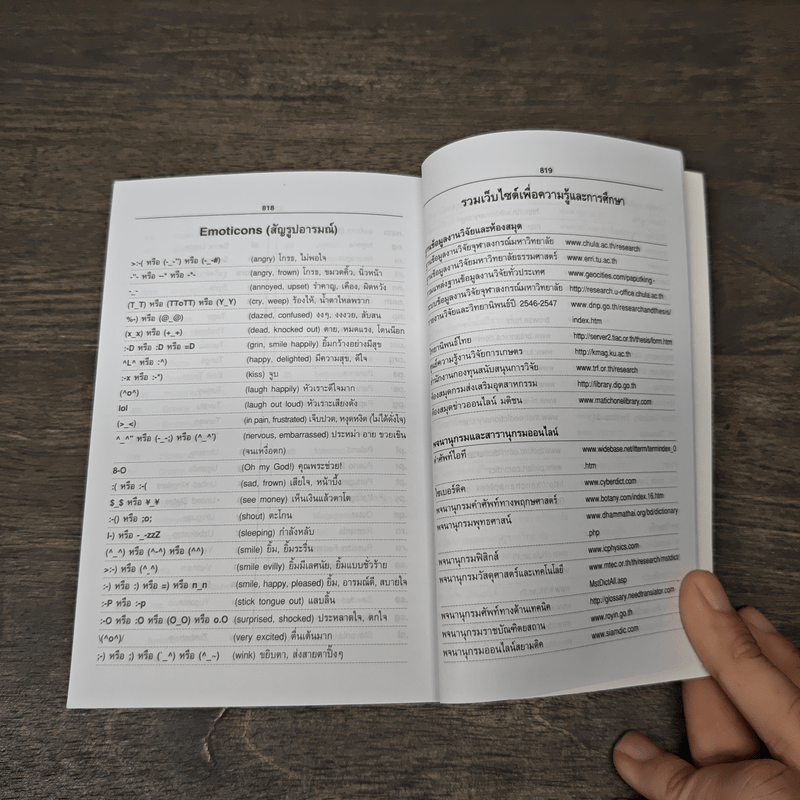 818
Emoticons (สัญรูปอารมณ์)
>:-( หรือ (-_-") หรือ (-_-#) (angry) โกรธ, ไม่พอใจ
-"- หรือ --" หรือ -"- (angry, frown) โกรธ, ขมวดคิ้ว, นิ่วหน้า
-_- (annoyed, upset) รำคาญ, เคือง, ผิดหวัง
(T_T) หรือ (TToTT) หรือ (Y_Y) (cry, weep) ร้องไห้, น้ำตาไหลพราก
%-) หรือ (@_@) (dazed, confused) งงๆ, งงงวย, สับสน
(x_x) หรือ (+_+) (dead, knocked out) ตาย, หมดแรง, โดนน็อก
:-D หรือ :D หรือ =D (grin, smile happily) ยิ้มกว้างอย่างมีสุข
^L^ หรือ :^) (happy, delighted) มีความสุข, ดีใจ
:-x หรือ :-*) (kiss) จูบ
(^o^) (laugh happily) หัวเราะดีใจมาก
lol (laugh out loud) หัวเราะเสียงดัง
(>_<) (in pain, frustrated) เจ็บปวด, หงุดหงิด (ไม่ได้ดั่งใจ)
^_^" หรือ (-_-;) หรือ (^_^') (nervous, embarrassed) ประหม่า อาย ขวยเขิน
(จนเหงื่อตก)
8-O (Oh my God!) คุณพระช่วย!
:( หรือ :-( (sad, frown) เสียใจ, หน้าบึ้ง
$_$ หรือ ¥_¥ (see money) เห็นเงินแล้วตาโต
:-() หรือ ;o; (shout) ตะโกน
I-) หรือ -_-zzZ (sleeping) กำลังหลับ
(^_^) หรือ (^-^) หรือ (^^) (smile) ยิ้ม, ยิ้มระรื่น
>:-) หรือ (^_^) (smile evilly) ยิ้มมีเลศนัย, ยิ้มแบบชั่วร้าย
:-) หรือ :) หรือ =) หรือ n_n (smile, happy, pleased) ยิ้ม, อารมณ์ดี, สบายใจ
:-P หรือ :-p (stick tongue out) แลบลิ้น
:-O หรือ :O หรือ (O_O) หรือ o.O (surprised, shocked) ประหลาดใจ, ตกใจ
\(^o^)/ (very excited) ตื่นเต้นมาก
;-) หรือ ;) หรือ (´_^) หรือ (^_~) (wink) ขยิบตา, ส่งสายตาปิ๊งๆ
819
รวมเว็บไซต์เพื่อความรู้และการศึกษา
ฐานข้อมูลงานวิจัยและห้องสมุด
ฐานข้อมูลงานวิจัยจุฬาลงกรณ์มหาวิทยาลัย www.chula.ac.th/research
ฐานข้อมูลงานวิจัยมหาวิทยาลัยธรรมศาสตร์ www.erri.tu.ac.th
รวมแหล่งฐานข้อมูลงานวิจัยทั่วประเทศ www.geocities.com/paputking
ระบบข้อมูลงานวิจัยจุฬาลงกรณ์มหาวิทยาลัย http://research.u-office.chula.ac.th
รายงานวิจัยและวิทยานิพนธ์ปี 2546-2547 www.dnp.go.th/researchandthesis/
index.htm
วิทยานิพนธ์ไทย http://server2.tiac.or.th/thesis/form.htm
ศูนย์ความรู้งานวิจัยการเกษตร http://kmag.ku.ac.th
สำนักงานกองทุนสนับสนุนการวิจัย www.trf.or.th/research
ห้องสมุดกรมส่งเสริมอุตสาหกรรม http://library.dip.go.th
ห้องสมุดข่าวออนไลน์ มติชน www.matichonelibrary.com
พจนานุกรมและสารานุกรมออนไลน์
คำศัพท์ไอที www.widebase.net/itterm/termindex_0
.htm
ไซเบอร์ดิค www.cyberdict.com
พจนานุกรมคำศัพท์ทางพฤกษศาสตร์ www.botany.com/index.16.htm
พจนานุกรมพุทธศาสน์ www.dhammathai.org/bd/dictionary
.php
พจนานุกรมฟิสิกส์ www.icphysics.com
พจนานุกรมวัสดุศาสตร์และเทคโนโลยี www.mtec.or.th/th/research/mstdict/
MstDictAll.asp
พจนานุกรมศัพท์ทางด้านเทคนิค http://glossary.needtranslator.com
พจนานุกรมราชบัณฑิตยสถาน www.royin.go.th
พจนานุกรมออนไลน์สยามดิค www.siamdic.com